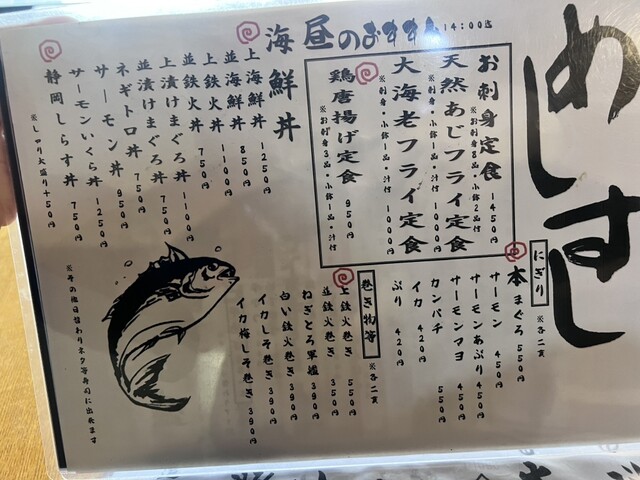 めしすし
昼のおすすめ 14:00迄
お刺身定食 1450円
※お刺身8品・小鉢2品付
天然あじフライ定食 1000円
※刺身・小鉢1品・汁付
大海老フライ定食 1000円
※刺身・小鉢1品・汁付
鶏唐揚げ定食 950円
※お刺身3品・小鉢1品・汁付
海鮮丼
上海鮮丼 1250円
並海鮮丼 850円
上鉄火丼 1100円
並鉄火丼 750円
上漬けまぐろ丼 1100円
並漬けまぐろ丼 750円
ネギトロ丼 750円
サーモン丼 950円
サーモンいくら丼 1250円
静岡しらす丼 750円
※しゃり大盛り+50円
にぎり ※各二貫
本まぐろ 550円
サーモン 450円
サーモンあぶり 450円
サーモンマヨ 450円
カンパチ 550円
イカ 420円
ぶり 420円
巻き物等 ※各二貫
上鉄火巻き 550円
並鉄火巻き 350円
ねぎとろ軍艦 390円
白い鉄火巻き 390円
イカしそ巻き 390円
イカ梅しそ巻き 390円
※その他日替わりネタ等寿司に出来ます